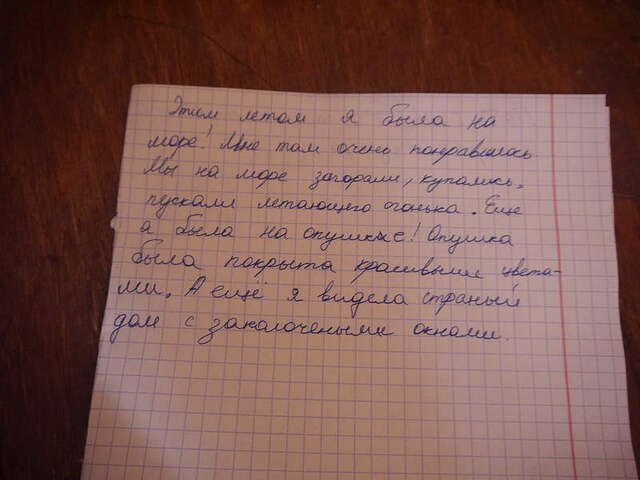 Этим летом я была на
море! Мне там очень понравилось.
Мы на море загорали, купались,
пускали летающего огонька. Еще
я была на опушке! Опушка
была покрыта красивыми цвета-
ми. А ещё я видела страный
дом с заколочеными окнами.